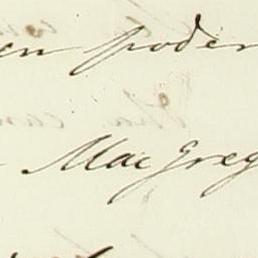 en poder
Mac Greg